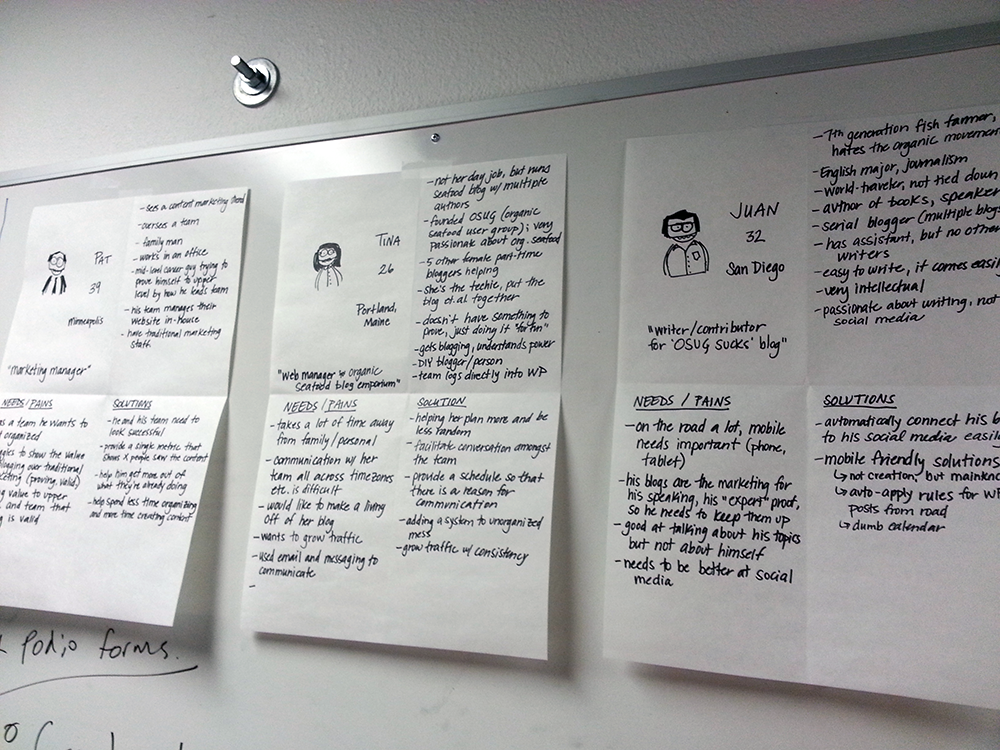 PAT
39
Minneapolis
"marketing manager"
- sees a content marketing trend
- oversees a team
- family man
- works in an office
- mid-level career guy trying to
prove himself to upper
level by how he leads team
- his team manages their
website in-house
- have traditional marketing
staff
NEEDS/PAINS
as a team he wants to
organized
to show the value
blogging over traditional
(proving valid)
value to upper
and team that
is valid
SOLUTIONS
- he and his team need to
look successful
- provide a single metric that
shows X people saw the content
- help him get more out of
what they're already doing
- help spend less time organizing
and more time creating content
TINA
26
Portland,
Maine
"Web manager organic
seafood blog emporium"
- not her day job, but runs
seafood blog w/ multiple
authors
- founded OSUG (organic
seafood user group); very
passionate about org. seafood
- 5 other female part-time
bloggers helping
- she's the techie, put the
blog et. al together
- doesn't have something to
prove, just doing it "for fun"
- gets blogging, understands power
- DIY blogger/person
- team logs directly into WP
NEEDS/PAINS
- takes a lot of time away
from family/personal
- communication w/ her
team all across timezones
etc. is difficult
- would like to make a living
off of her blog
- wants to grow traffic
- used email and messaging to
communicate
-
SOLUTION
- helping her plan more and be
less random
- facilitate conversation amongst
the team
- provide a schedule so that
there is a reason for
communication
- adding a system to unorganized
mess
- grow traffic w/ consistency
JUAN
32
San Diego
"writer/contributor
for 'OSUG SUCKS' blog"
- 7th generation fish farmer,
hates the organic movement
- English major, journalism
- World-traveler, not tied down
- author of books, speaker
- serial blogger (multiple blogs
- has assistant, but no other
writers
- easy to write, it comes easil
- very intellectual
- passionate about writing, not
social media
NEEDS / PAINS
- on the road a lot, mobile
needs important (phone,
tablet)
- his blogs are the marketing for
his speaking, his "expert" proof,
so he needs to keep them up
- good at talking about his topics
but not about himself
- needs to be better at social
media
SOLUTIONS
- automatically connect his b
to his social media easil
- mobile friendly solutions
↳ not creation, but
↳ auto-apply rules for WP
posts from road
↳ dumb calendar
Podio forms.